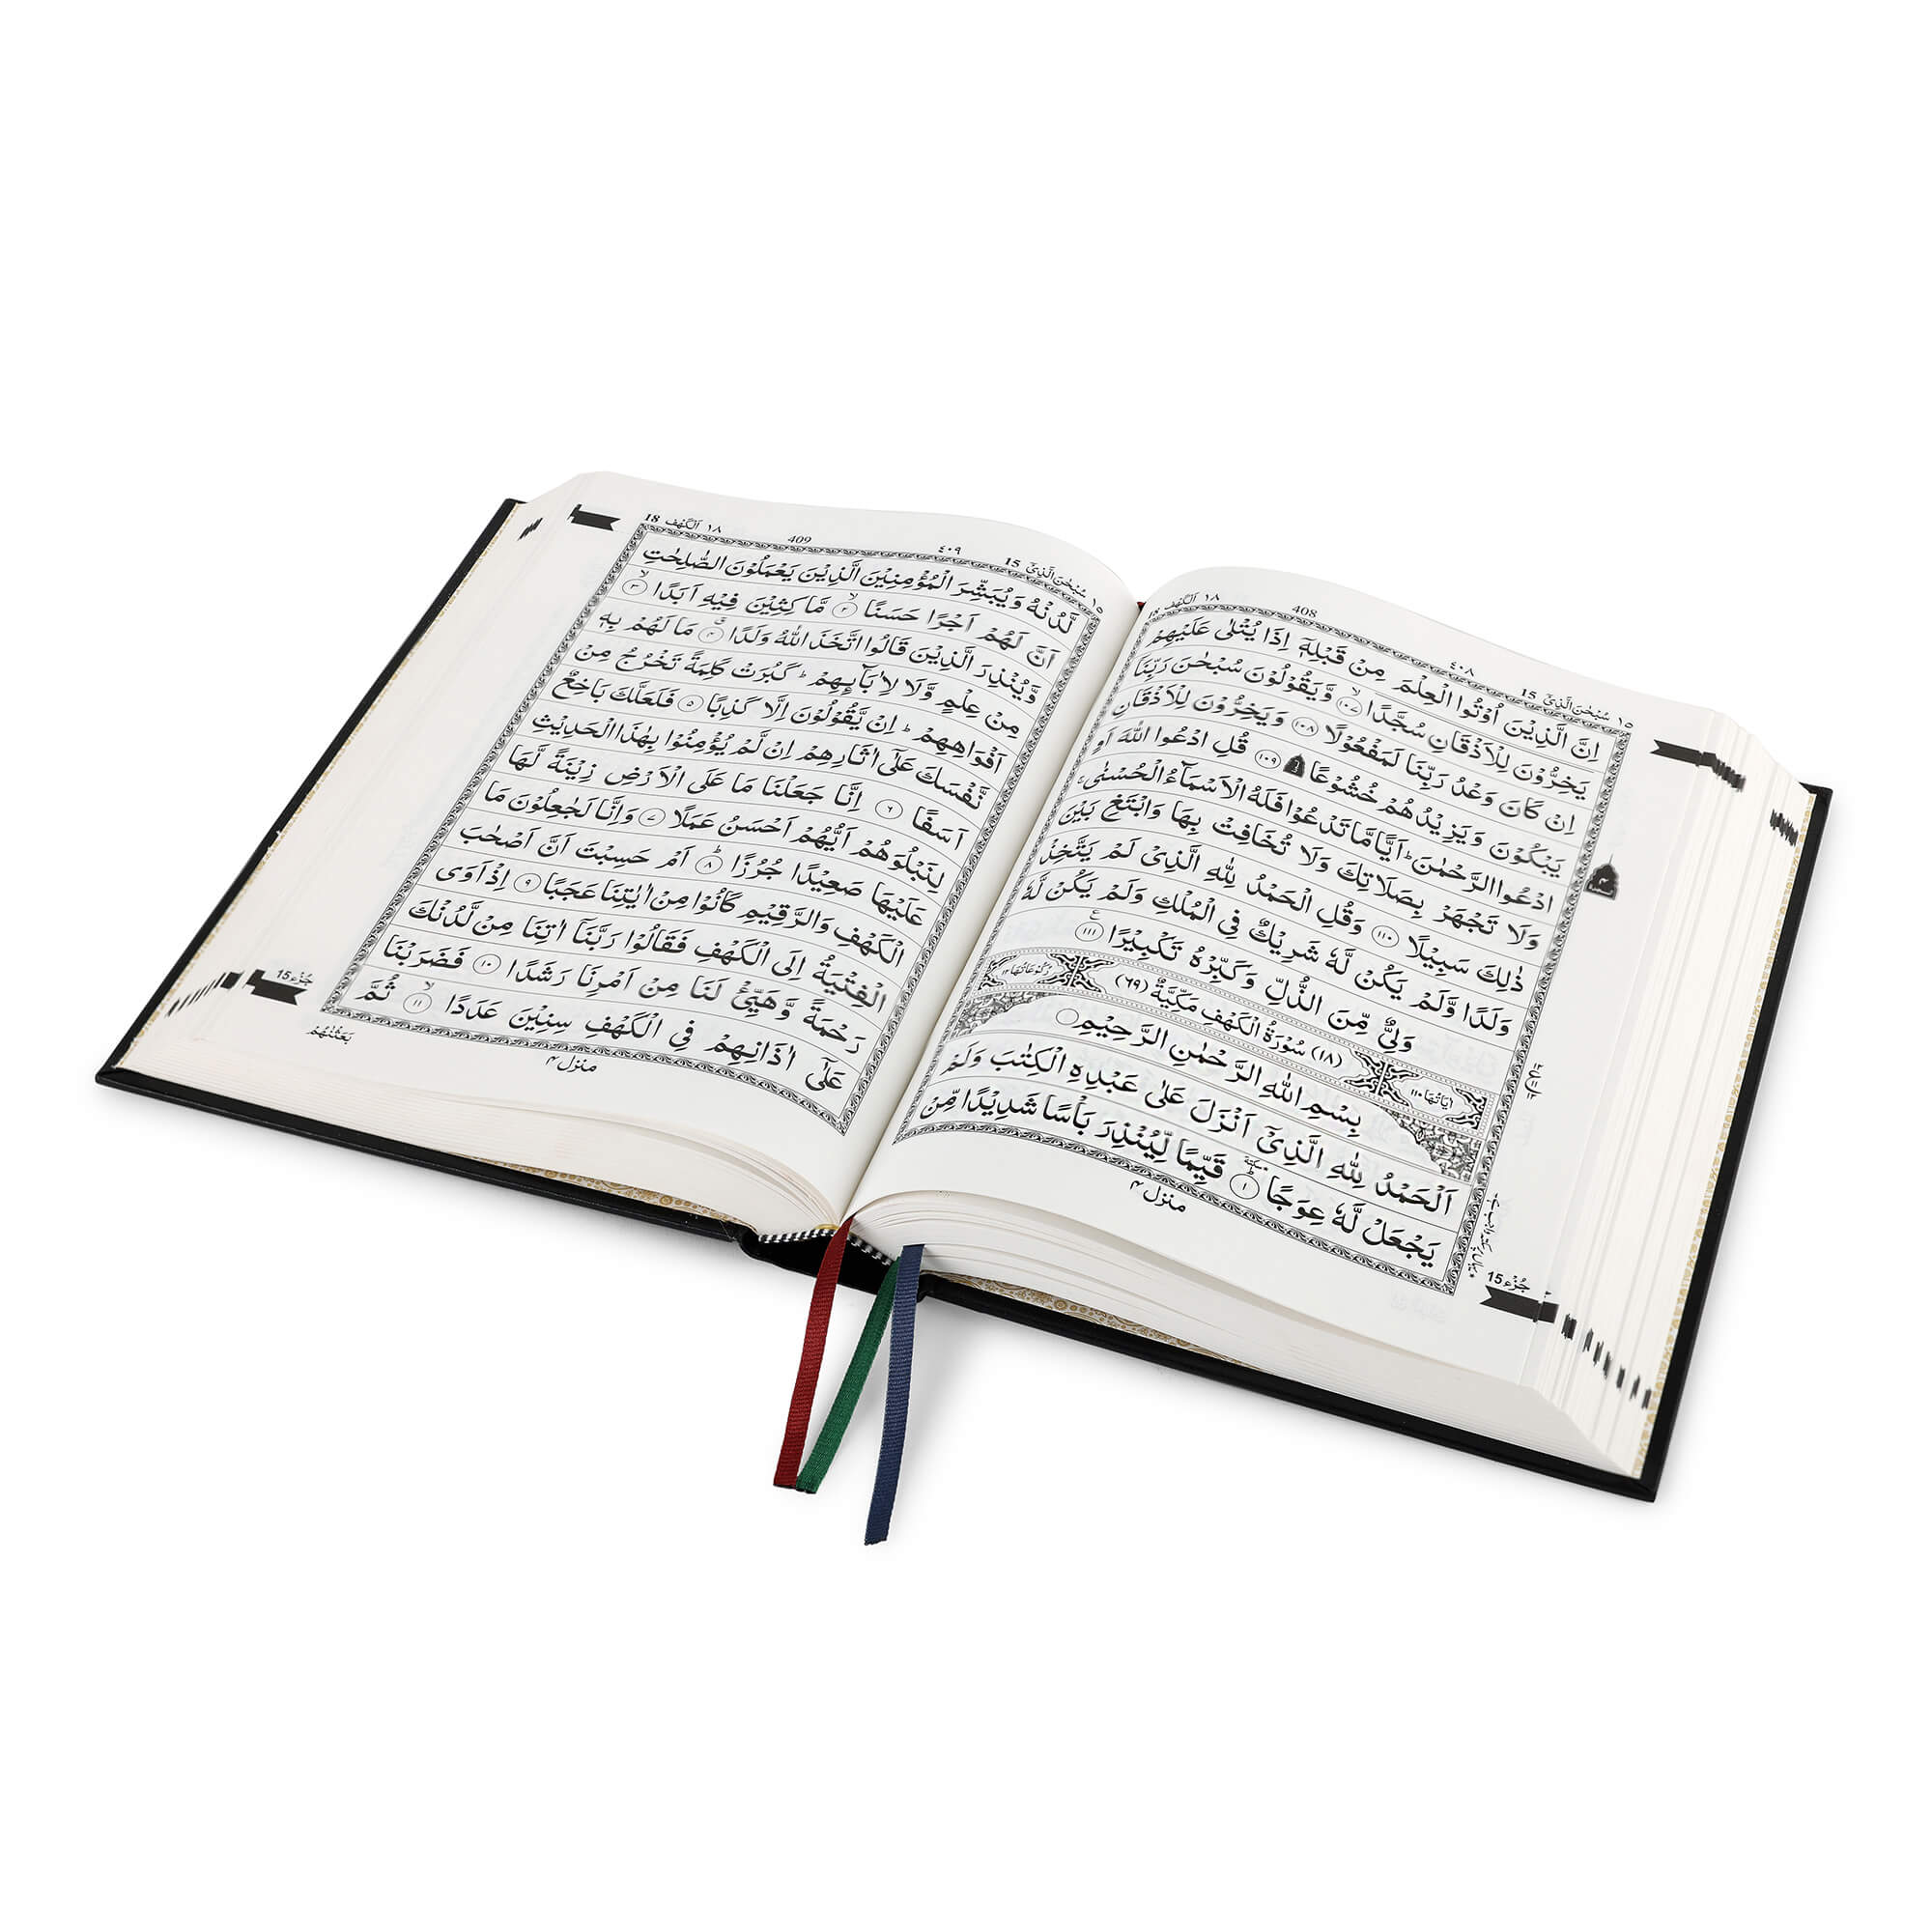 ١٥ سُبْحٰنَ الَّذِيْٓ 15 ٤٠٨ 408 ١٨ اَلْكَهْف 18
اِنَّ الَّذِيْنَ اُوْتُوا الْعِلْمَ مِنْ قَبْلِهٖٓ اِذَا يُتْلٰى عَلَيْهِمْ
يَخِرُّوْنَ لِلْاَذْقَانِ سُجَّدًا ۙ﴿١٠٧﴾ وَّيَقُوْلُوْنَ سُبْحٰنَ رَبِّنَآ
اِنْ كَانَ وَعْدُ رَبِّنَا لَمَفْعُوْلًا ﴿١٠٨﴾ وَيَخِرُّوْنَ لِلْاَذْقَانِ
يَبْكُوْنَ وَيَزِيْدُهُمْ خُشُوْعًا ﴿١٠٩﴾ قُلِ ادْعُوا اللّٰهَ اَوِ
ادْعُوا الرَّحْمٰنَ ؕ اَيًّا مَّا تَدْعُوْا فَلَهُ الْاَسْمَآءُ الْحُسْنٰى ۚ
وَلَا تَجْهَرْ بِصَلَاتِكَ وَلَا تُخَافِتْ بِهَا وَابْتَغِ بَيْنَ
ذٰلِكَ سَبِيْلًا ﴿١١٠﴾ وَقُلِ الْحَمْدُ لِلّٰهِ الَّذِيْ لَمْ يَتَّخِذْ
وَلَدًا وَّلَمْ يَكُنْ لَّهٗ شَرِيْكٌ فِي الْمُلْكِ وَلَمْ يَكُنْ لَّهٗ
وَلِيٌّ مِّنَ الذُّلِّ وَكَبِّرْهُ تَكْبِيْرًا ﴿١١١﴾
اٰيَاتُهَا ١١٠ ﴿١٨﴾ سُوْرَةُ الْكَهْفِ مَكِّيَّةٌ ﴿٦٩﴾ رُكُوْعَاتُهَا ١٢
بِسْمِ اللّٰهِ الرَّحْمٰنِ الرَّحِيْمِ
اَلْحَمْدُ لِلّٰهِ الَّذِيْٓ اَنْزَلَ عَلٰى عَبْدِهِ الْكِتٰبَ وَلَمْ
يَجْعَلْ لَّهٗ عِوَجًا ﴿١﴾ قَيِّمًا لِّيُنْذِرَ بَاْسًا شَدِيْدًا مِّنْ
منزل ٤
جُزْء 15
١٥ سُبْحٰنَ الَّذِيْٓ 15 ٤٠٩ 409 ١٨ اَلْكَهْف 18
لَّدُنْهُ وَيُبَشِّرَ الْمُؤْمِنِيْنَ الَّذِيْنَ يَعْمَلُوْنَ الصّٰلِحٰتِ
اَنَّ لَهُمْ اَجْرًا حَسَنًا ۙ﴿٢﴾ مَّاكِثِيْنَ فِيْهِ اَبَدًا ۙ﴿٣﴾
وَّيُنْذِرَ الَّذِيْنَ قَالُوا اتَّخَذَ اللّٰهُ وَلَدًا ﴿٤﴾ مَا لَهُمْ بِهٖ
مِنْ عِلْمٍ وَّلَا لِاٰبَآئِهِمْ ؕ كَبُرَتْ كَلِمَةً تَخْرُجُ مِنْ
اَفْوَاهِهِمْ ؕ اِنْ يَّقُوْلُوْنَ اِلَّا كَذِبًا ﴿٥﴾ فَلَعَلَّكَ بَاخِعٌ
نَّفْسَكَ عَلٰٓى اٰثَارِهِمْ اِنْ لَّمْ يُؤْمِنُوْا بِهٰذَا الْحَدِيْثِ
اَسَفًا ﴿٦﴾ اِنَّا جَعَلْنَا مَا عَلَى الْاَرْضِ زِيْنَةً لَّهَا
لِنَبْلُوَهُمْ اَيُّهُمْ اَحْسَنُ عَمَلًا ﴿٧﴾ وَاِنَّا لَجٰعِلُوْنَ مَا
عَلَيْهَا صَعِيْدًا جُرُزًا ؕ﴿٨﴾ اَمْ حَسِبْتَ اَنَّ اَصْحٰبَ
الْكَهْفِ وَالرَّقِيْمِ كَانُوْا مِنْ اٰيٰتِنَا عَجَبًا ﴿٩﴾ اِذْ اَوَى
الْفِتْيَةُ اِلَى الْكَهْفِ فَقَالُوْا رَبَّنَآ اٰتِنَا مِنْ لَّدُنْكَ
رَحْمَةً وَّهَيِّئْ لَنَا مِنْ اَمْرِنَا رَشَدًا ﴿١٠﴾ فَضَرَبْنَا
عَلٰٓى اٰذَانِهِمْ فِي الْكَهْفِ سِنِيْنَ عَدَدًا ۙ﴿١١﴾ ثُمَّ
منزل ٤
بَعَثْنٰهُمْ
جُزْء 15